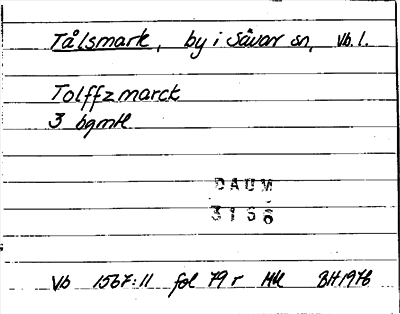 Tålsmark, by i Sävar sn, Vb. l.
Tolffzmarck
3 bgmtl
DAUM
3166
Vb 1567:11 fol 79 r Mtl BH 1976